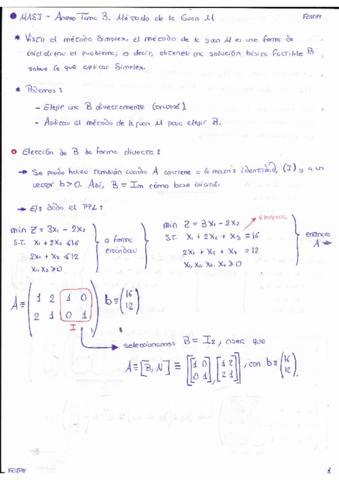 MASI - Anexo Tema 3. Método de la Gran M
• Visto el método Simplex, el método de la gran M es una forma de
inicializar el problema; es decir, obtener una solución básica factible B
sobre la que aplicar Simplex.
• Podemos:
- Elegir una B directamente (crucial).
- Aplicar el método de la gran M para elegir B.
Elección de B de forma directa:
→ Se puede hacer también cuando A contiene a la matriz identidad, (I) y a un
vector b>0. Así, B = Im como base inicial.
→ Ej: dado el PPL:
min Z = 3x₁ - 2x₂
s.t. x₁ + 2x₂ ≤ 16
2x₁ + x₂ ≤ 12
x₁, x₂ ≥ 0
a forma
estándar
min Z = 3x₁ - 2x₂
s.t. x₁ + 2x₂ + x₃ = 16
2x₁ + x₂ + x₄ = 12
x₁, x₂, x₃, x₄ ≥ 0
entonces
A →
A ≡ (1 2 1 0
2 1 0 1) b ≡ (16
12)
I
seleccionamos B = I₂, para que
A ≡ [B, N] ≡ [[1 0
0 1], [1 2
2 1]], con b ≡ (16
12).
1